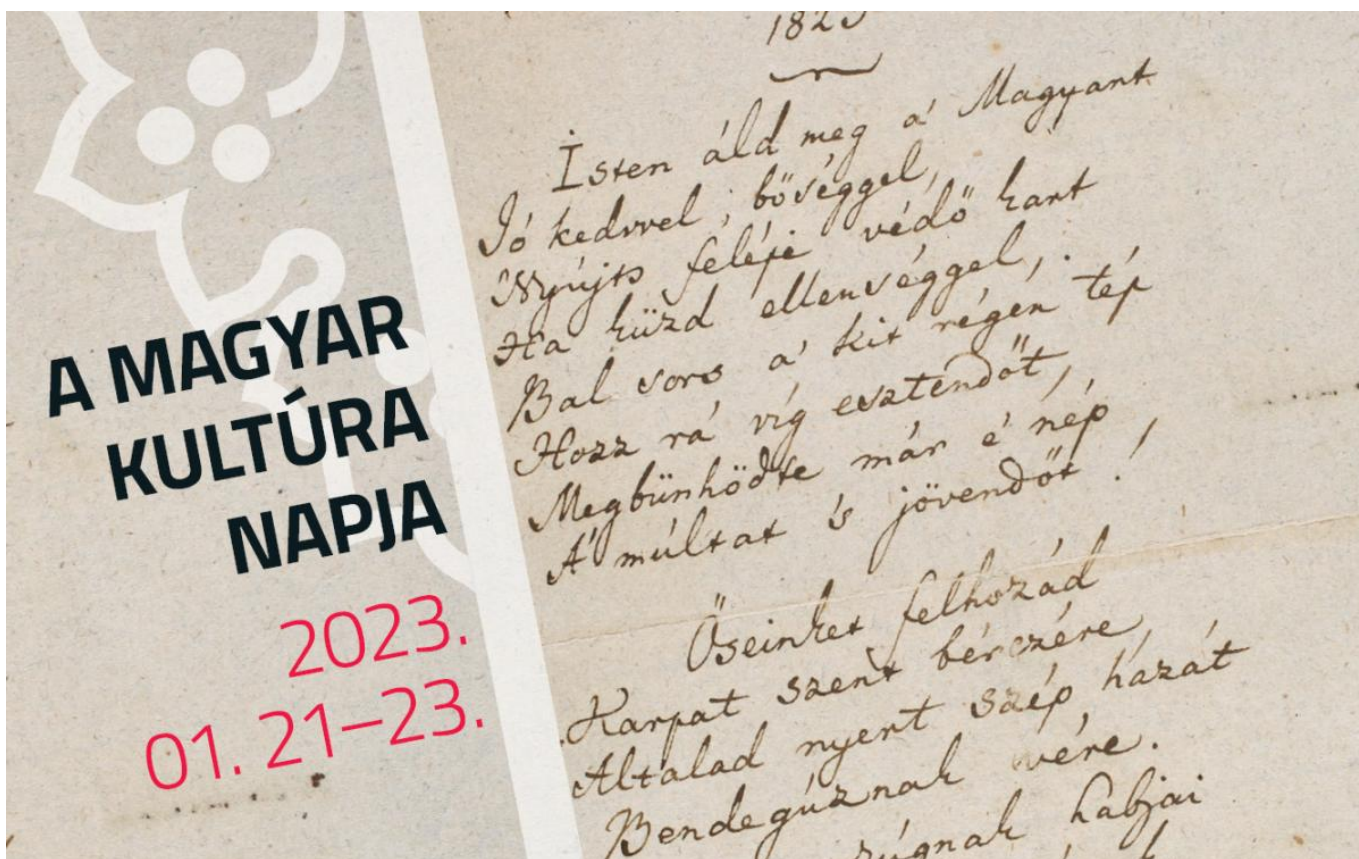 A MAGYAR
KULTÚRA
NAPJA
2023.
01. 21–23.
1823
Isten áld meg a' Magyart
Jó kedvvel, bőséggel,
Nyújts feléje védő kart
Ha küzd ellenséggel,
Bal sors a' kit régen tép
Hozz rá víg esztendőt,
Megbünhödte már e' nép
A' múltat 's jövendőt!
Őseinket felhozád
Karpat szent bérczére,
Altalad nyert szép hazát
Bendegúznak vére.
zúgnak habjai